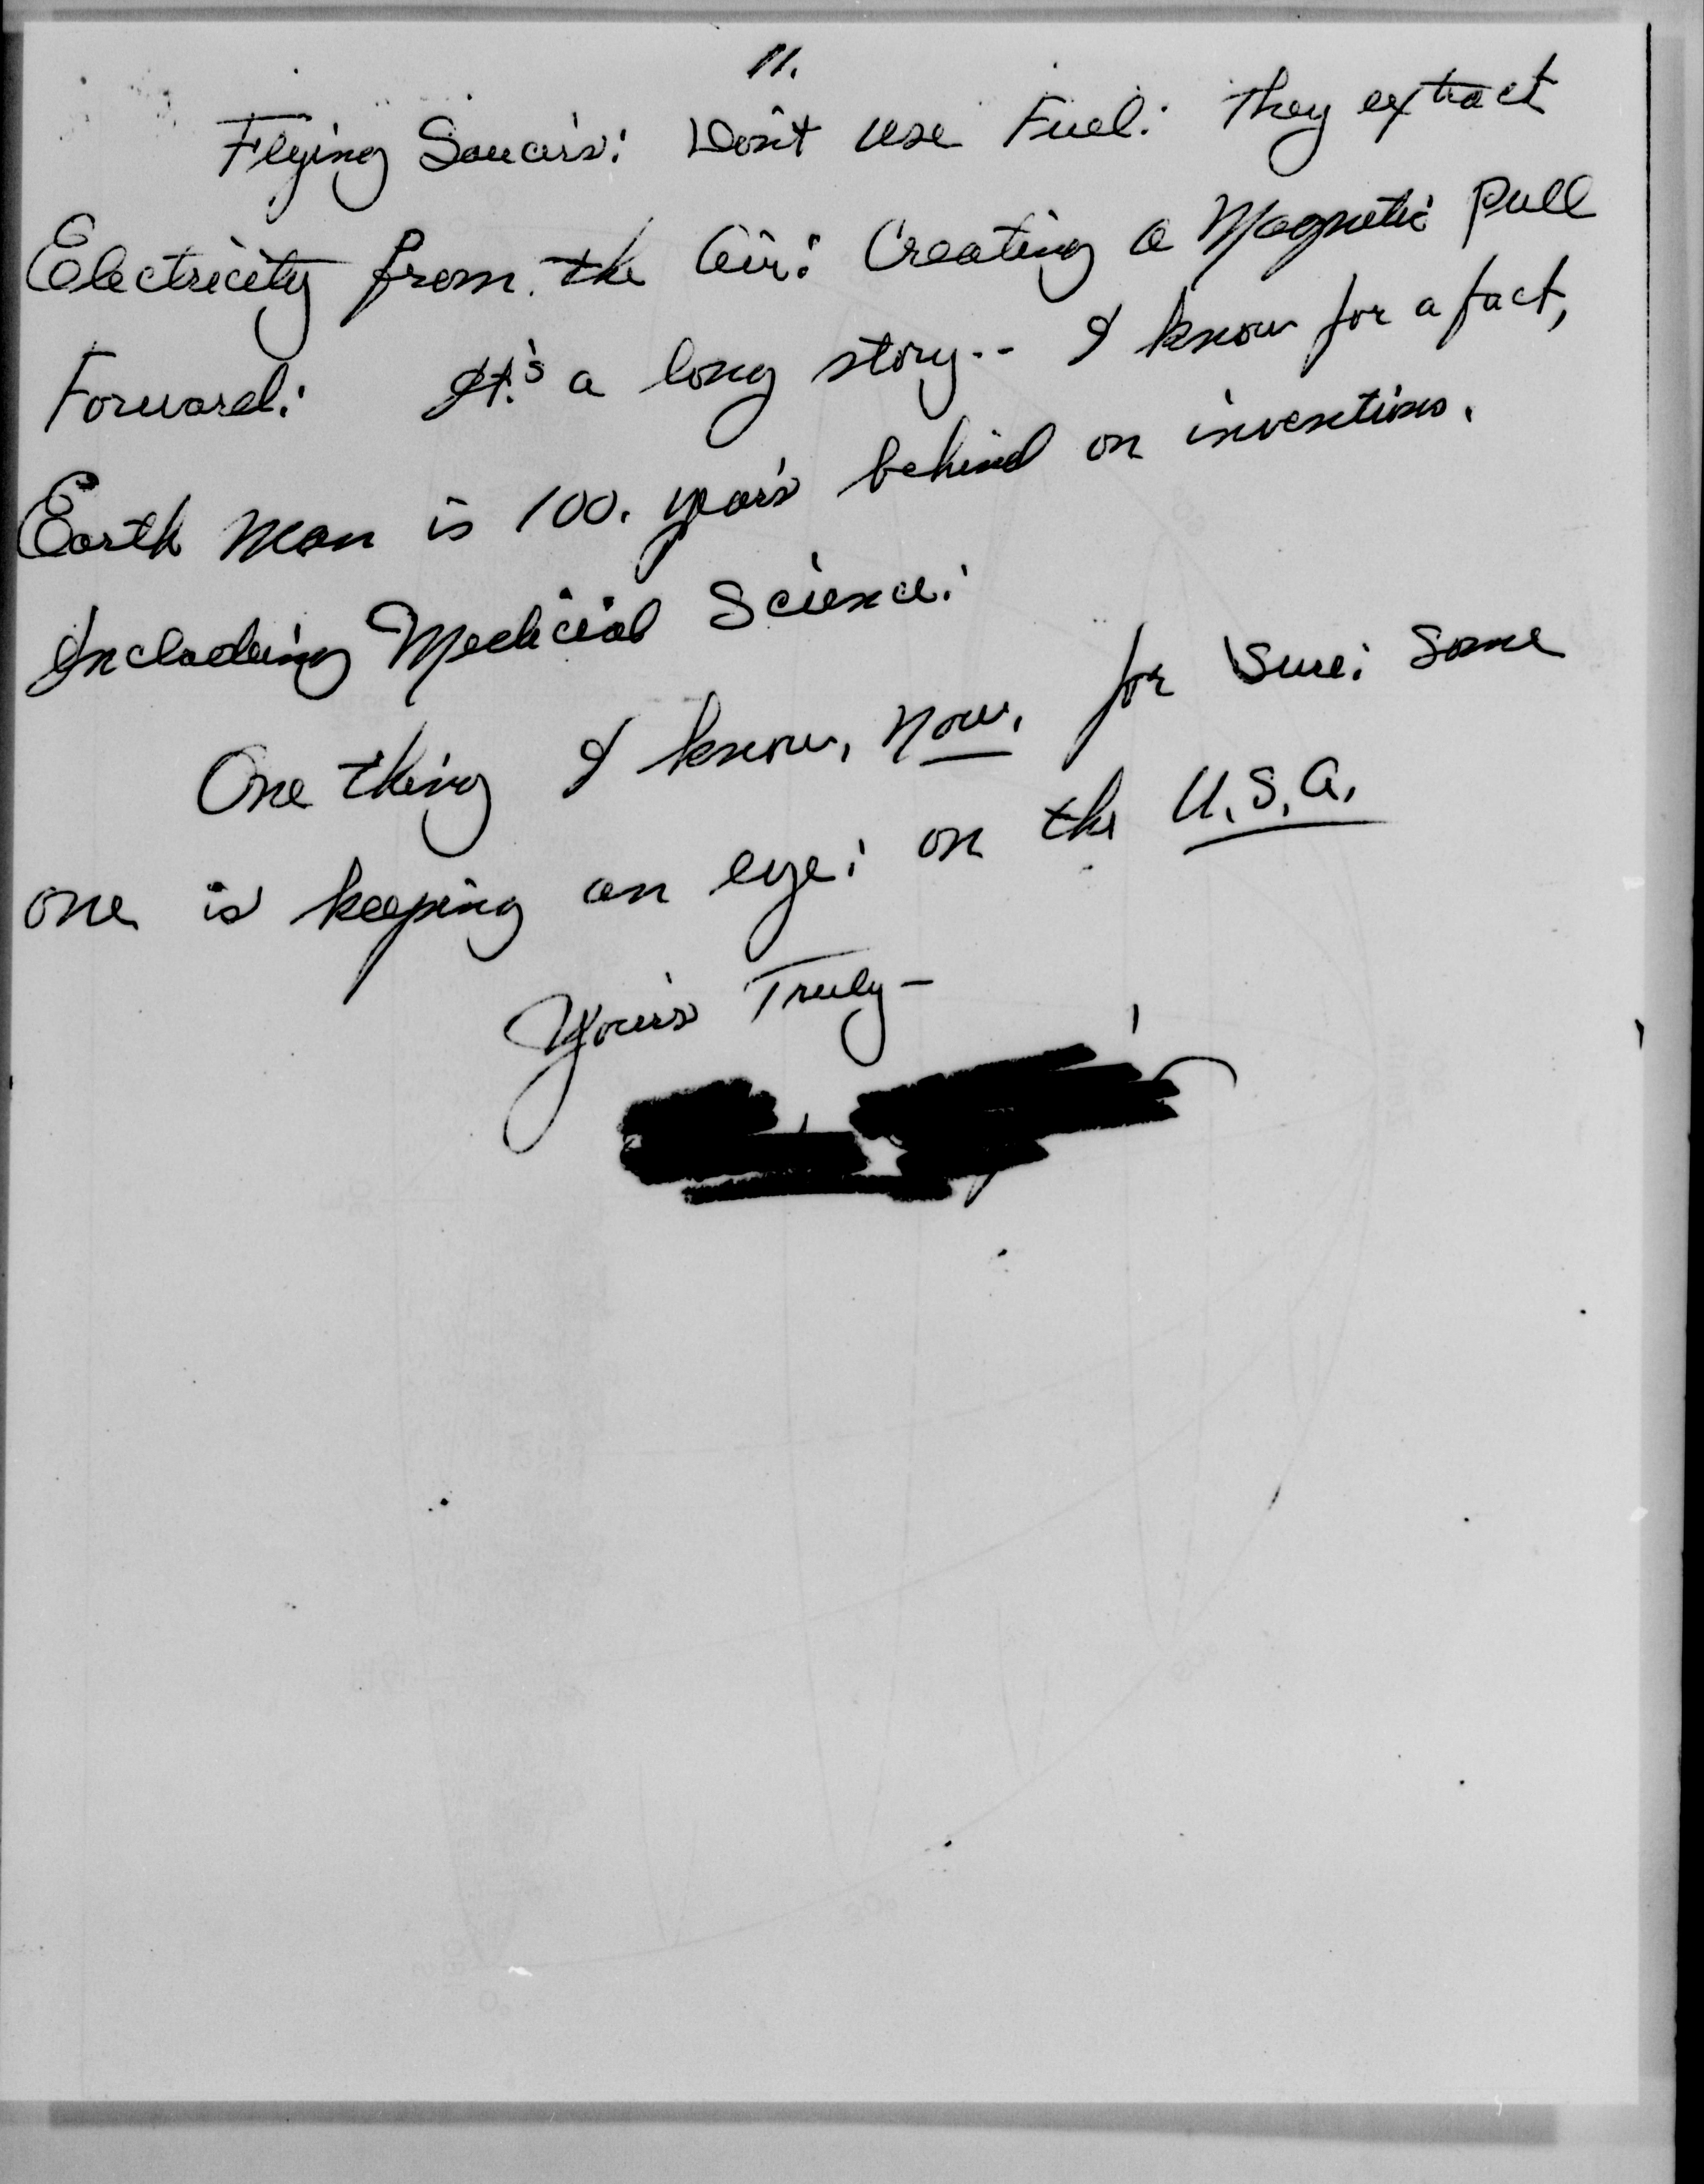 11.
Flying Saucer's: Don't use Fuel: They extract
Electricity from the Air: Creating a Magnetic Pull
Forward: It's a long story-- I know for a fact,
Earth Man is 100. year's behind on inventions.
Including Medicial Science:
One thing I know, now, for Sure: Some
one is keeping an eye: on the U.S.A.
Your's Truly-